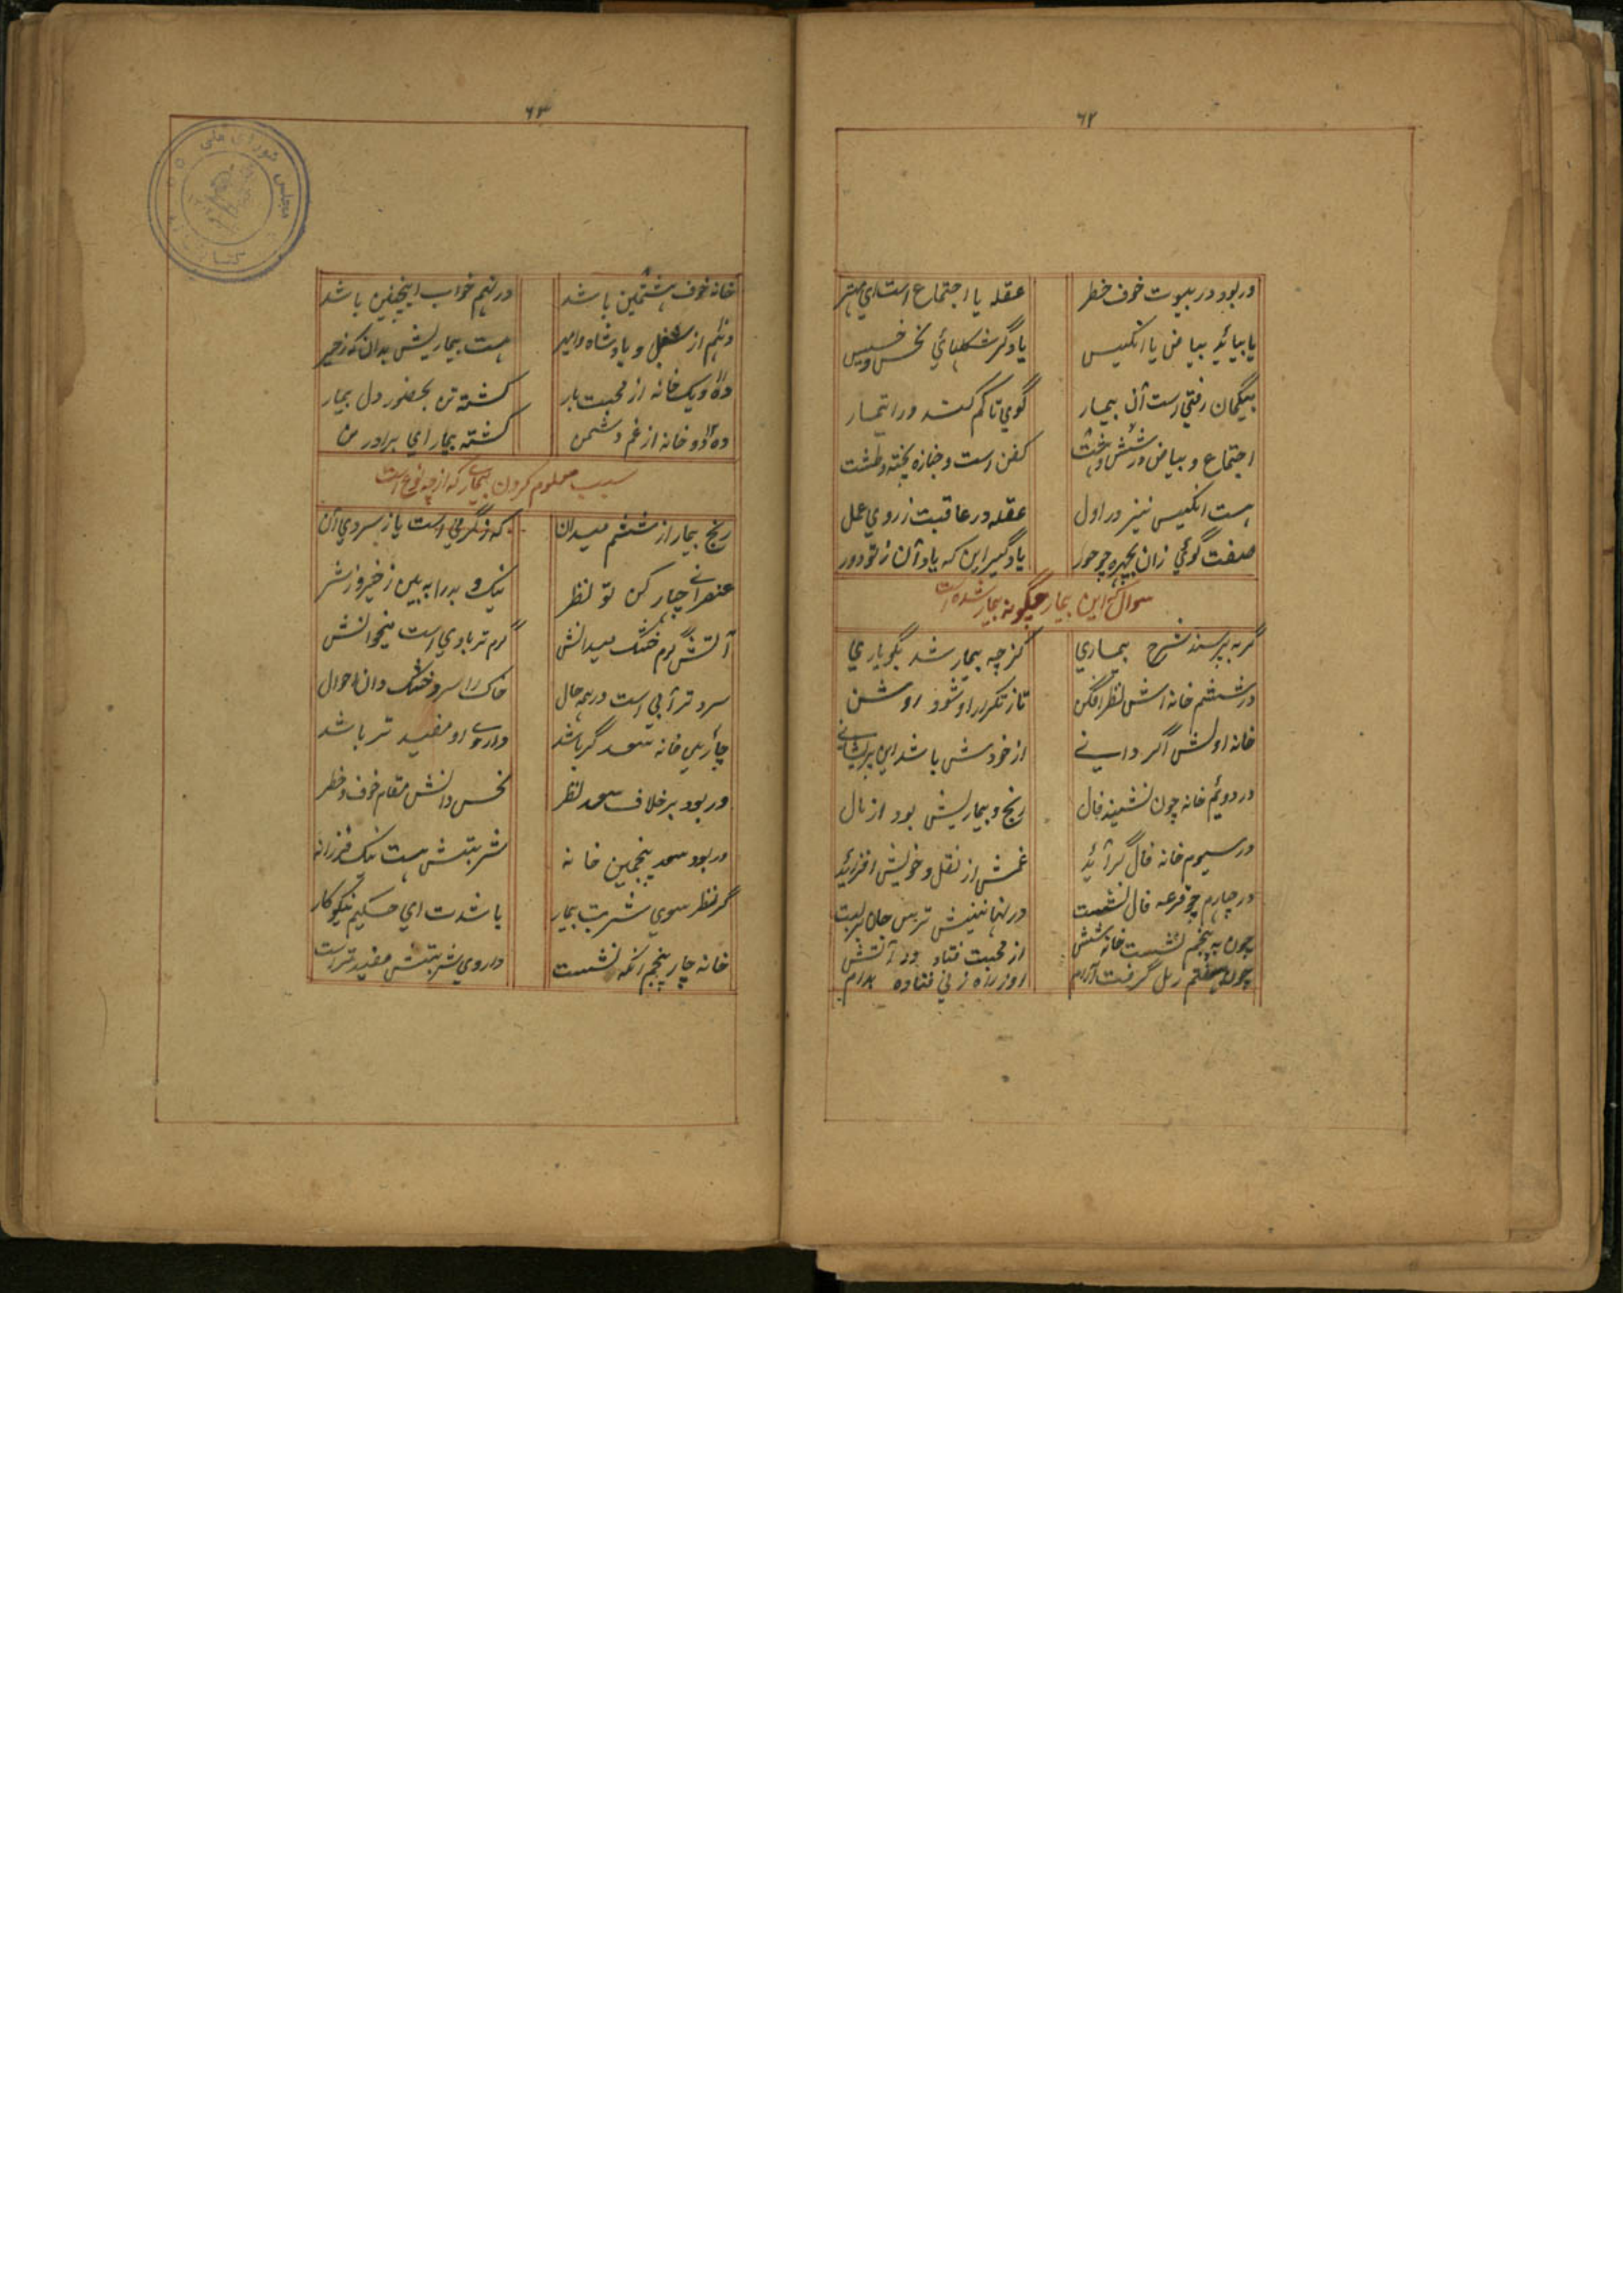 ۶۲
وربود در بیوت خوف خطر عقله یا اجتماع است ای مهتر
یا بیائد بیاض یا انکیس یا دگر شکلهائی نحس و خسیس
بیگمان رفتنی است آن بیمار گوی تا کم کند ورا تیمار
اجتماع و بیاض در شش و هشت کفن است و جنازه تخته و طشت
هست انکیس نیز در اول عقله در عاقبت ز روی عمل
صفت گوئی زان بچهره چو حور یاد گیر این که باد آن ز تو دور
سوال این بیمار چگونه بیمار شده است
گر بپرسند شرح بیماری کز چه بیمار شد بگو باری
در ششم خانه اش نظر افگن تا ز تکرار او شود روشن
خانه اولش اگر دانی از خودش باشد این پریشانی
در دویم خانه چون نشیند فال رنج و بیماریش بود از مال
در سیوم خانه فال گر آئید غمش از نقل و خویش افزائید
در چارم چو قرعه فال نشست در نهانیش ترس جان
چون به پنجم نشست خانه شش از محبت فتاد در آتش
چون بهفتم رمل گرفت آرام روز راه زنی فتاده بدام
۶۳
خانه خوف هشتمین باشد در نهم خواب اینچنین باشد
دهم از شغل و پادشاه و امیر هست بیماریش بدان که زحیر
ده و یک خانه از محبت یار کشته تن بحضور دل بیمار
ده و دو خانه از غم دشمن گشته بیمار ای برادر من
سبب معلوم کردن بیماری که از چه نوع است
رنج بیمار از ششم میدان که ز گرمی است یا ز سردی آن
عنصرانی چار کن تو نظر نیک و بد را به بین ز خیر و ز شر
آتش گرم خشک میدانش گرم تر بادی است میخوانش
سرد تر آبی است در همه حال خاک را سرد خشک دان احوال
چارمی خانه سعد گر باشد داروی او مفید تر باشد
وربود بر خلاف سعد نظر نحس دانش مقام خوف و خطر
وربود سعد پنجمین خانه شربتش هست نیک فرزانه
گر نظر سوی شربت بیمار باشدت ای حکیم نیکو کار
خانه چار پنجم آنکه نشست داروی شربتش مفید تر است
مجلس شورای ملی